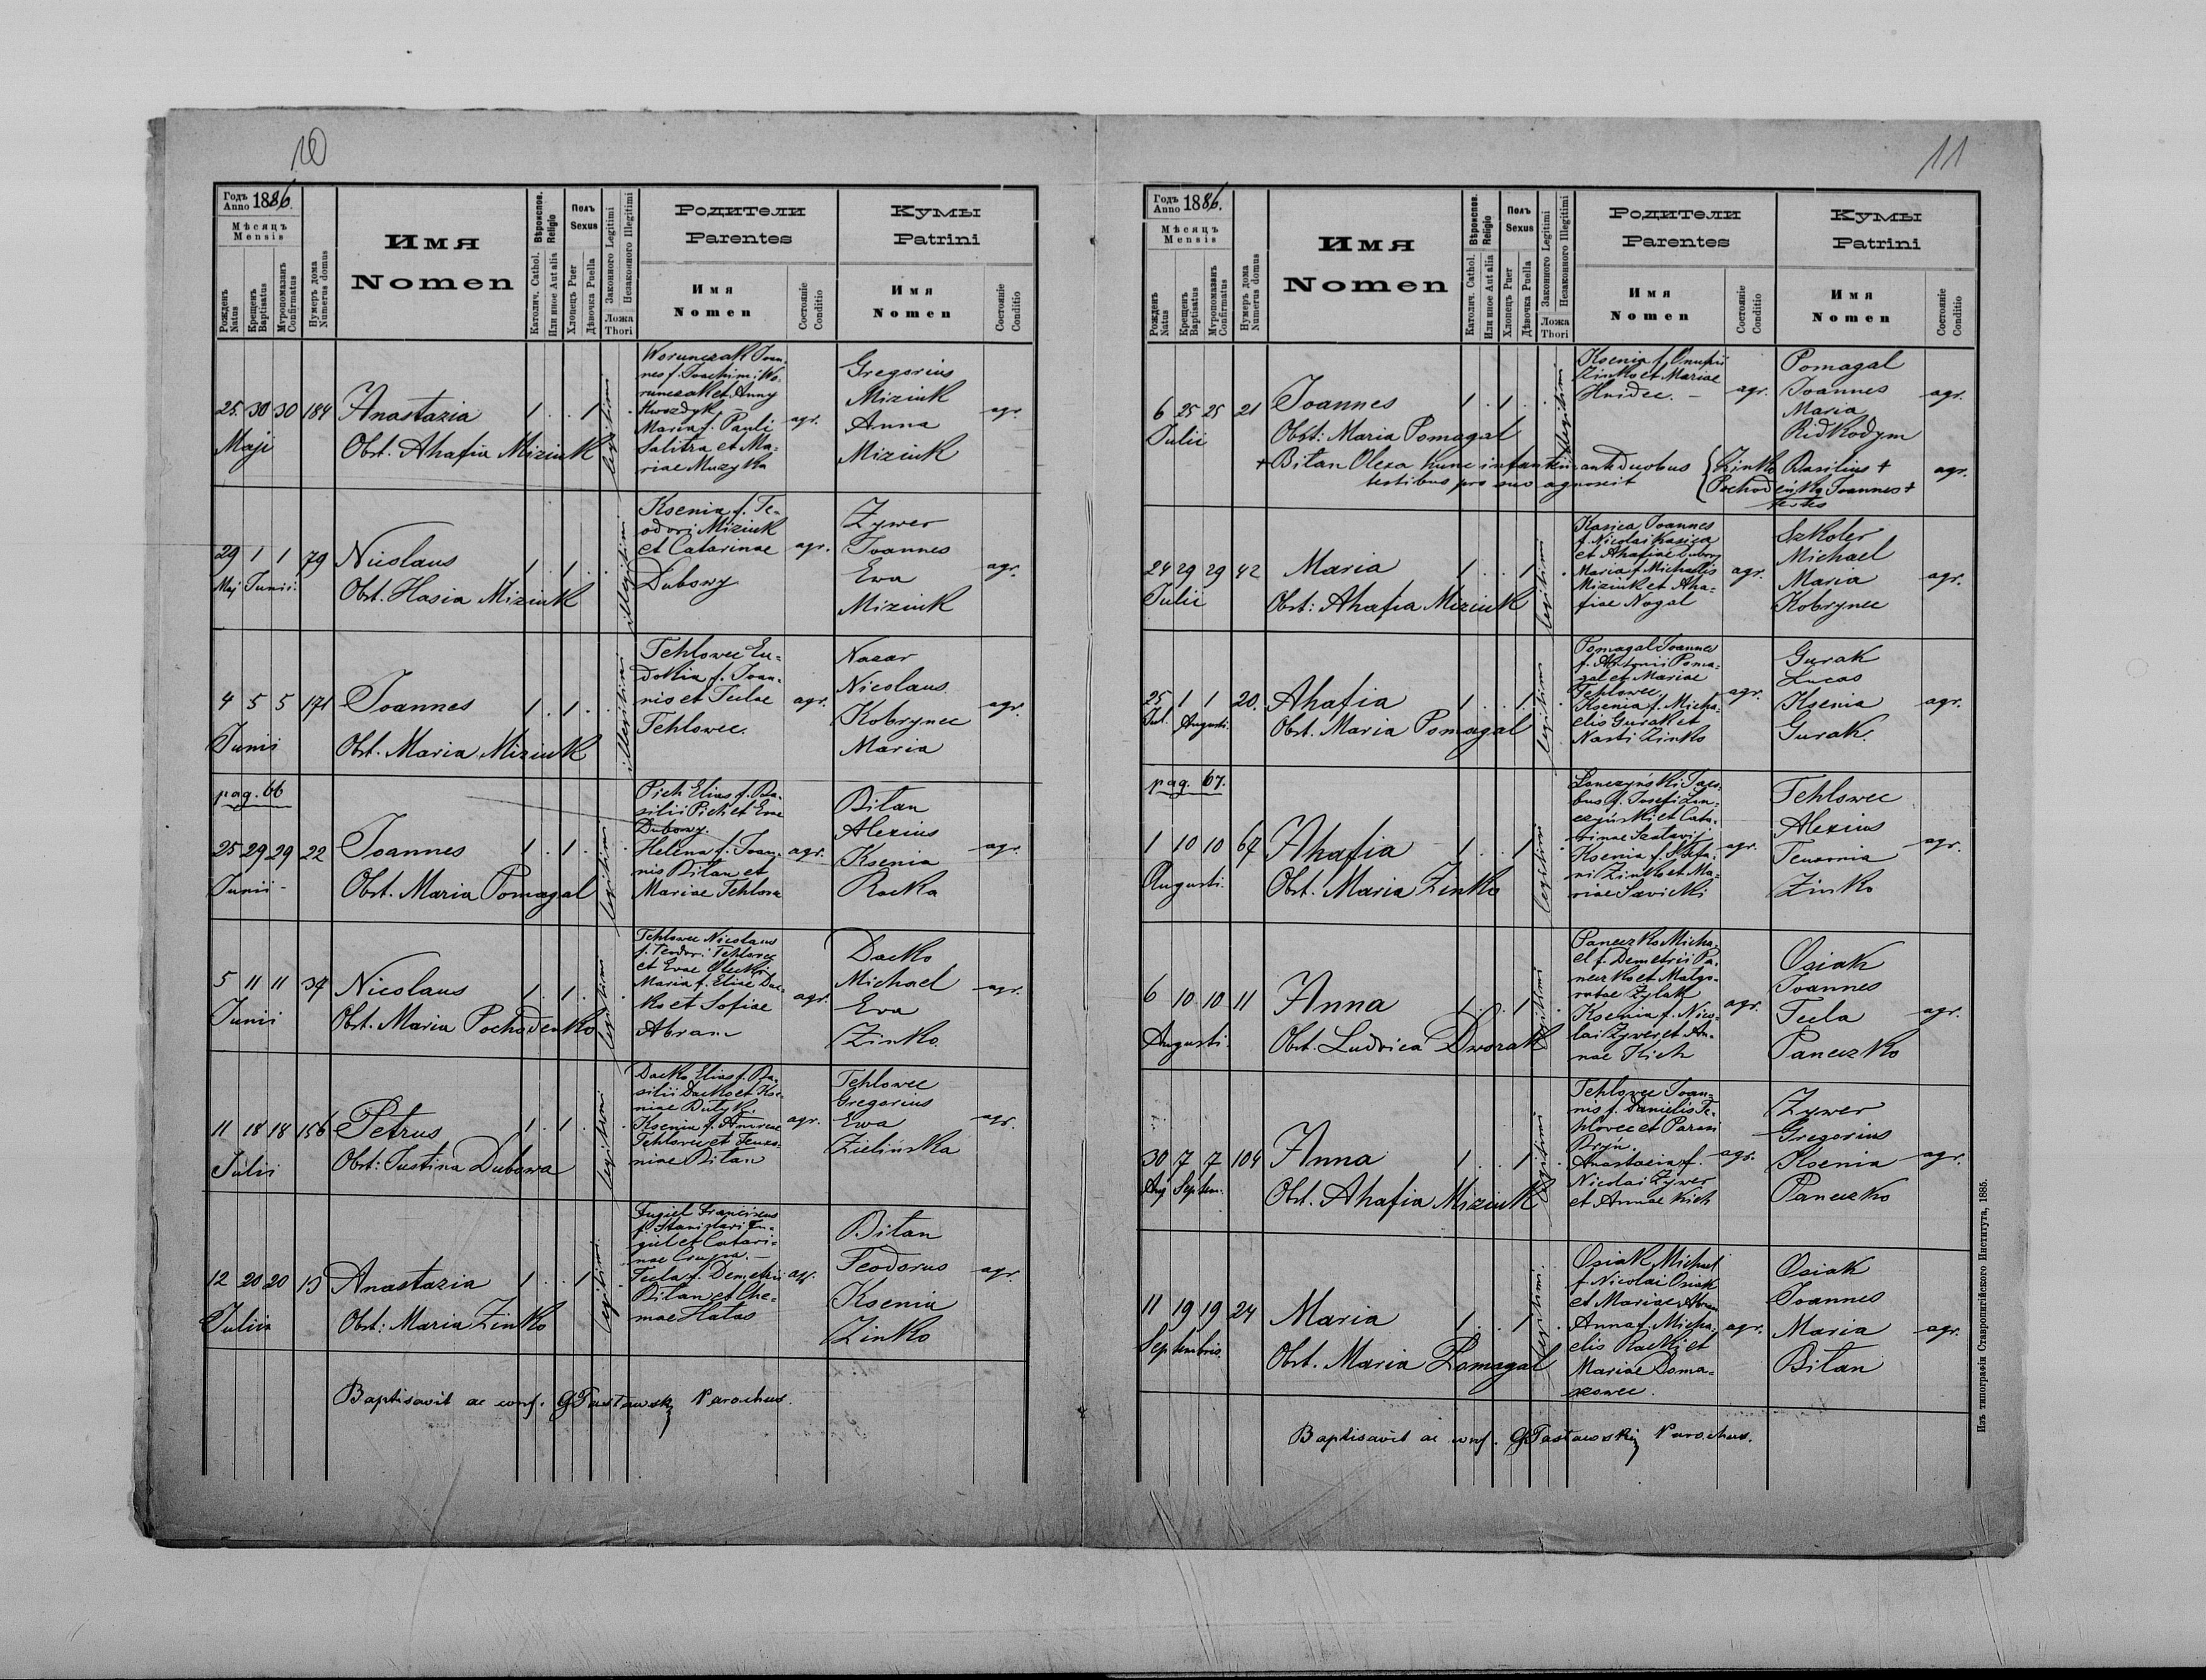 10
Годъ Anno 1886.
Мѣсяцъ
Mensis
Рожденъ Natus
Крещенъ Baptisatus
Мѵропомазанъ Confirmatus
Нумеръ дома Numerus domus
Имя
Nomen
Вѣроиспов. Religio
Католич. Cathol.
Или иное Aut alia
Полъ
Sexus
Хлопецъ Puer
Дѣвочка Puella
Законного Legitimi
Незаконного Illegitimi
Ложа
Thori
Родители
Parentes
Имя
Nomen
Состояніе Conditio
Кумы
Patrini
Имя
Nomen
Состояніе Conditio
25. 30 30 184 Anastazia 1 . . 1 legitimi
Maji
Obst. Ahafia Miziuk
Worunczak Joan-
nes f. Joachimi Wo-
runczak et Anny
Kwozdyk
Maria f. Pauli
Salitra et Ma-
riae Muzyka
agr.
Gregorius
Miziuk
Anna
Miziuk
agr.
29 1 1 79 Nicolaus 1 . 1 . illegitimi
Maj Junii
Obst. Hasia Miziuk
Ksenia f. Te-
odori Miziuk
et Catarinae
Dubowy
agr.
Zywer
Joannes
Ewa
Miziuk
agr.
4 5 5 171 Joannes 1 . 1 . illegitimi
Junii
Obst. Maria Miziuk
Tehlowec Eu-
dokia f. Joan-
nis et Teclae
Tehlowec.
agr.
Nazar
Nicolaus
Kobrynec
Maria
agr.
pag. 66
25 29 29 22 Joannes 1 . 1 . legitimi
Junii
Obst. Maria Pomagal
Pich Elias f. Ba-
silii Pich et Evae
Dubowy.
Helena f. Joan-
nis Bitan et
Mariae Tehlowec
agr.
Bitan
Alexius
Ksenia
Racka
agr.
5 11 11 37 Nicolaus 1 . 1 . legitimi
Junii
Obst. Maria Pochodenko
Tehlowec Nicolaus
f. Teodori Tehlowec
et Evae
Maria f. Eliae Dac-
ko et Sofiae
Abram
agr.
Dacko
Michael
Eva
Zinko.
agr.
11 18 18 156 Petrus 1 . 1 . legitimi
Julii
Obst: Justina Dubowa
Dacko Elias f. Ba-
silii Dacko et Kse-
niae Dutyk.
Ksenia f. Andreae
Tehlowec et Teuro-
niae Bitan
agr.
Tehlowec
Gregorius
Ewa
Zielińska
agr.
12 20 20 19 Anastazia 1 . . 1 legitimi
Julii
Obst: Maria Zinko
Fugiel Franciscus
f. Stanislavi Fu-
giel et Catari-
nae Crupa. —
Tecla f. Demetrii
Bitan et Che-
mae Hatas
agr.
Bitan
Teodorus
Ksenia
Zinko
agr.
Baptisavit ac conf. G Pastawski Parochus.
11
Годъ Anno 1886.
Мѣсяцъ
Mensis
Рожденъ Natus
Крещенъ Baptisatus
Мѵропомазанъ Confirmatus
Нумеръ дома Numerus domus
Имя
Nomen
Вѣроиспов. Religio
Католич. Cathol.
Или иное Aut alia
Полъ
Sexus
Хлопецъ Puer
Дѣвочка Puella
Законного Legitimi
Незаконного Illegitimi
Ложа
Thori
Родители
Parentes
Имя
Nomen
Состояніе Conditio
Кумы
Patrini
Имя
Nomen
Состояніе Conditio
6 25 25 21 Joannes 1 . 1 . illegitimi
Julii
Obst: Maria Pomagal
Ksenia f. Onufrii
Zinko et Mariae
Hnidec. —
agr.
Pomagal
Joannes
Maria
Ridkodym
agr.
+ Bitan Olexa hunc infantem ante duobus { Zinko Basilius +
testibus pro suo agnoscit { Pochodeńko Joannes +
testes
agr.
24 29 29 42 Maria 1 . . 1 legitimi
Julii
Obst: Ahafia Miziuk
Kasica Joannes
f. Nicolai Kasica
et Ahafiae Dubowy
Maria f. Michaelis
Miziuk et Aha-
fiae Nogal
agr.
Szkoler
Michael
Maria
Kobrynec
agr.
25 1 1 20. Ahafia 1 . . 1 legitimi
Jul. Augusti.
Obst. Maria Pomagal
Pomagal Joannes
f. Antonii Poma-
gal et Mariae
Tehlowec.
Ksenia f. Micha-
elis Gurak et
Nasti Zinko
agr.
Gurak
Lucas
Ksenia
Gurak.
agr.
pag. 67.
1 10 10 67 Ahafia 1 . . 1 legitimi
Augusti.
Obst. Maria Zinko
Lenczyński Jaco-
bus f. Josefi Len-
czyński et Cata-
rinae
Ksenia f. Stefa-
ni Zinko et Ma-
riae Savicki
agr.
Tehlowec
Alexius
Teuronia
Zinko
agr.
6 10 10 11 Anna 1 . . 1 legitimi
Augusti.
Obst. Ludvica Dworak
Paneczko Micha-
el f. Demetrii Pa-
neczko et Malgo-
ratae Zylak
Ksenia f. Nico-
lai Zywer et An-
nae Kich
agr.
Osiak
Joannes
Tecla
Paneczko
agr.
30 7 7 104 Anna 1 . . 1 legitimi
Aug Septem.
Obst. Ahafia Miziuk
Tehlowec Joan-
nis f. Danielis Te-
hlovec et Parasi
Bryn.
Anastazia f.
Nicolai Zywer
et Annae Kich
agr.
Zywer
Gregorius
Ksenia
Paneczko
agr.
11 19 19 24 Maria 1 . . 1 legitimi.
Septembris.
Obst. Maria Pomagal
Osiak Michael
f. Nicolai Osiak
et Mariae Abram
Anna f. Micha-
elis Racki et
Mariae Doma-
zowec.
agr.
Osiak
Joannes
Maria
Bitan
agr.
Baptisavit ac conf. G Pastawski Parochus.
Изъ типографіи Ставропигійского Института, 1885.